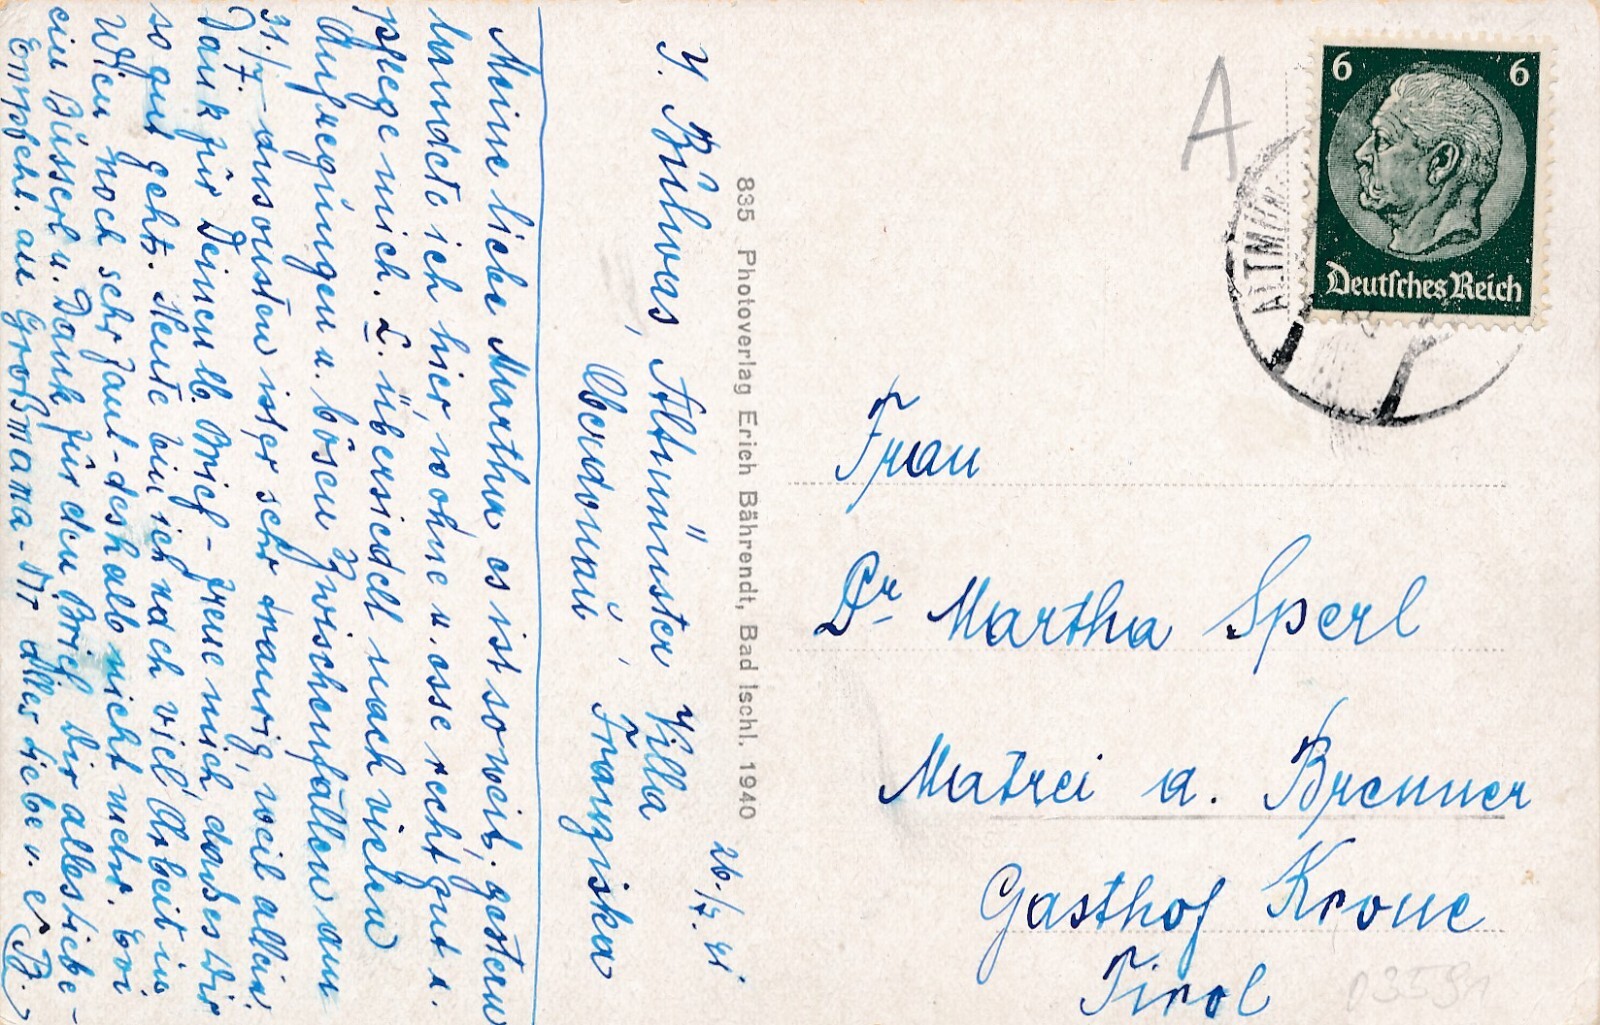 Meine liebe Martha es ist soweit; gestern
landete ich hier, wohne u. esse recht gut u.
pflege mich. L. übersiedelt nach vielen
Aufregungen u. bösen Zwischenfällen am
31./7. ansonsten ist er sehr traurig, weil allein.
Dank für Deinen lb. Brief - freue mich, dass es Dir
so gut geht. Heute bin ich nach viel Arbeit in
Wien noch sehr faul - deshalb nicht mehr.
ein Busserl u. Dank für den Brief Dir alles Liebe -
Empfehl. an Großmama - Dir alles Liebe v. B.
Altmünster Villa
Oberdonau, Franziska
26./7. 41
835 Photoverlag Erich Bährendt, Bad Ischl. 1940
A
6 6
Deutsches Reich
Frau
Dr Martha Sperl
Matrei a. Brenner
Gasthof Krone
Tirol